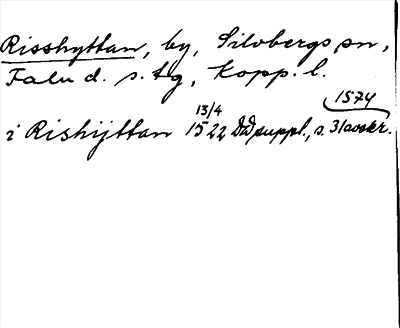 Risshyttan, by, Silvbergs sn,
Falu d. s. tg, Kopp. l.
1574
i Rishijttan 13/4 1522 DD suppl., s. 31 avskr.